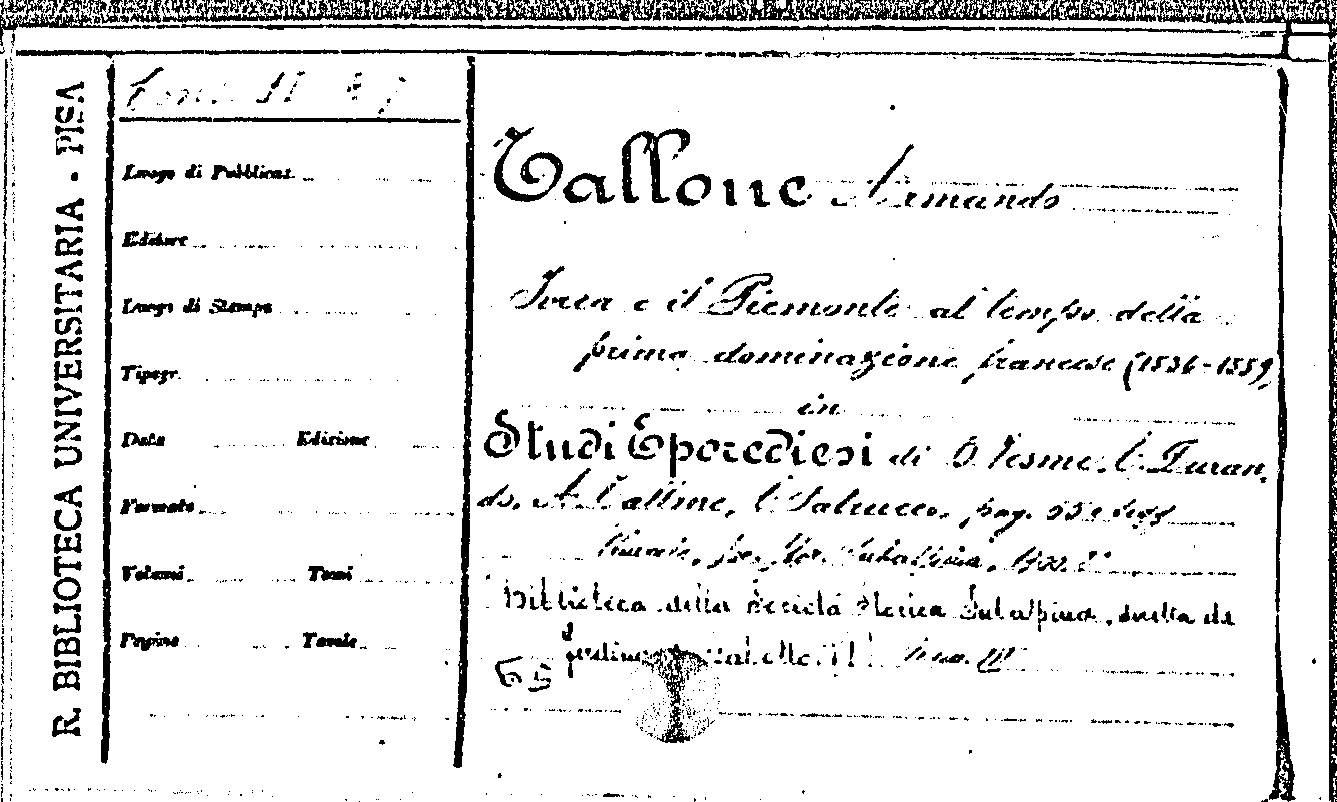 R. BIBLIOTECA UNIVERSITARIA - PISA
Luogo di Pubblicaz.
Editore
Luogo di Stampa
Tipogr.
Data Edizione
Formato
Volumi Tomi
Pagine Tavole
Tallone Armando
Ivrea e il Piemonte al tempo della
prima dominazione francese (1536-1559)
in
Studi Eporediesi di B. Vesme, C. Duran,
do, A. Tallone, C. Salsotto, pag. 55 e segg
1900
Biblioteca della Società Storica Subalpina, diretta da
65